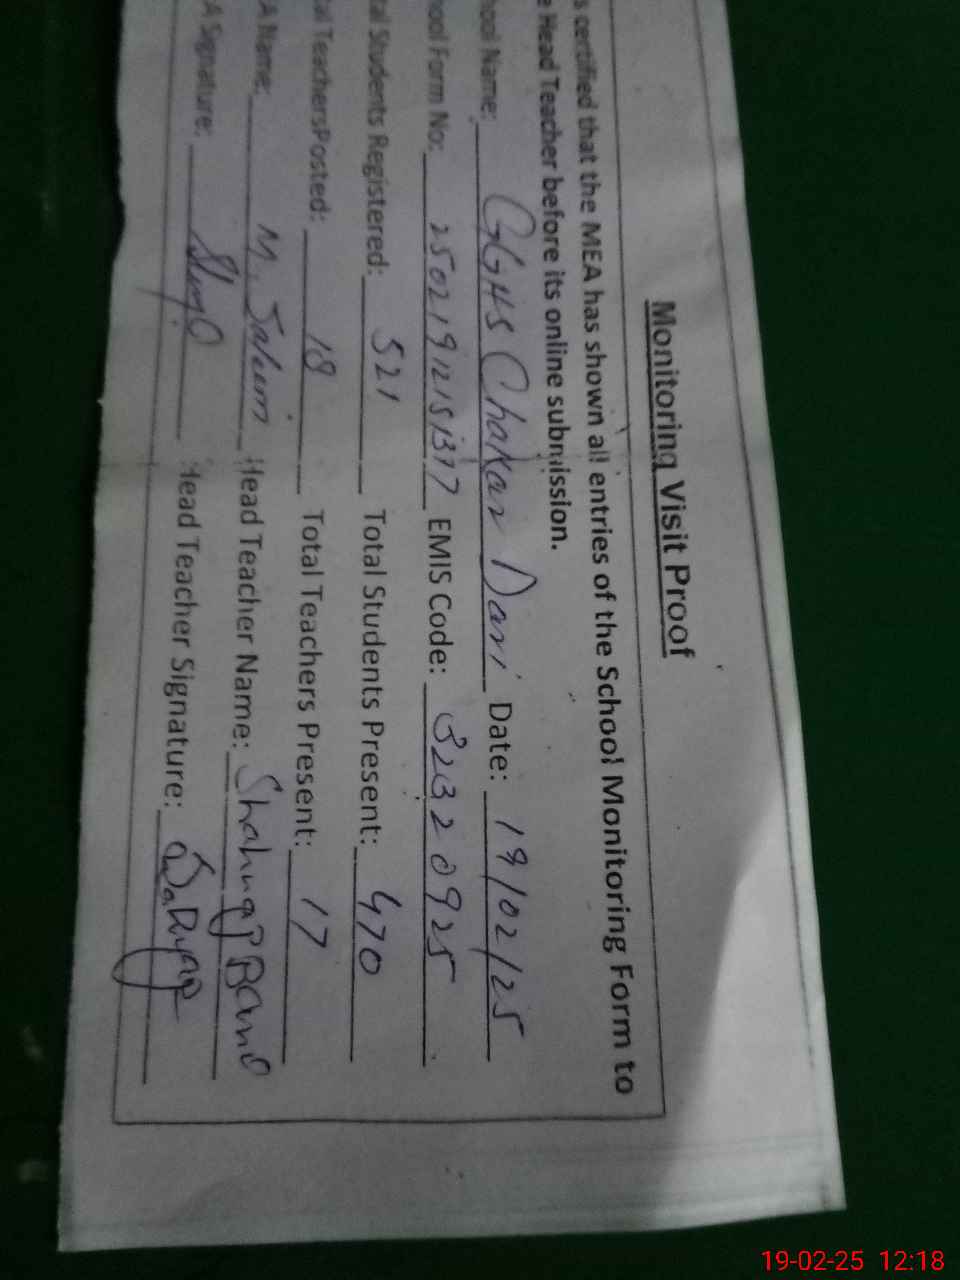 Monitoring Visit Proof
s certified that the MEA has shown all entries of the School Monitoring Form to
e Head Teacher before its online submission.
hool Name: GGHS Chakar Dari Date: 19/02/25
hool Form No: 25021912151377 EMIS Code: 32320925
tal Students Registered: 521 Total Students Present: 470
tal TeachersPosted: 18 Total Teachers Present: 17
A Name: M. Saleem Head Teacher Name: Bano
A Signature: Head Teacher Signature:
19-02-25 12:18